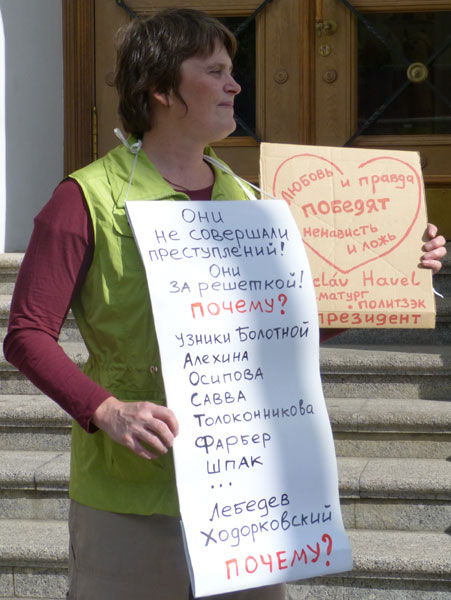 Они
не совершали
преступлений!
Они
за решеткой!
Почему?
узники Болотной
Алехина
Осипова
Савва
Толоконникова
Фарбер
Шпак
...
Лебедев
Ходорковский
Почему?
Любовь и правда
победят
ненависть
и ложь
Havel
политзэк